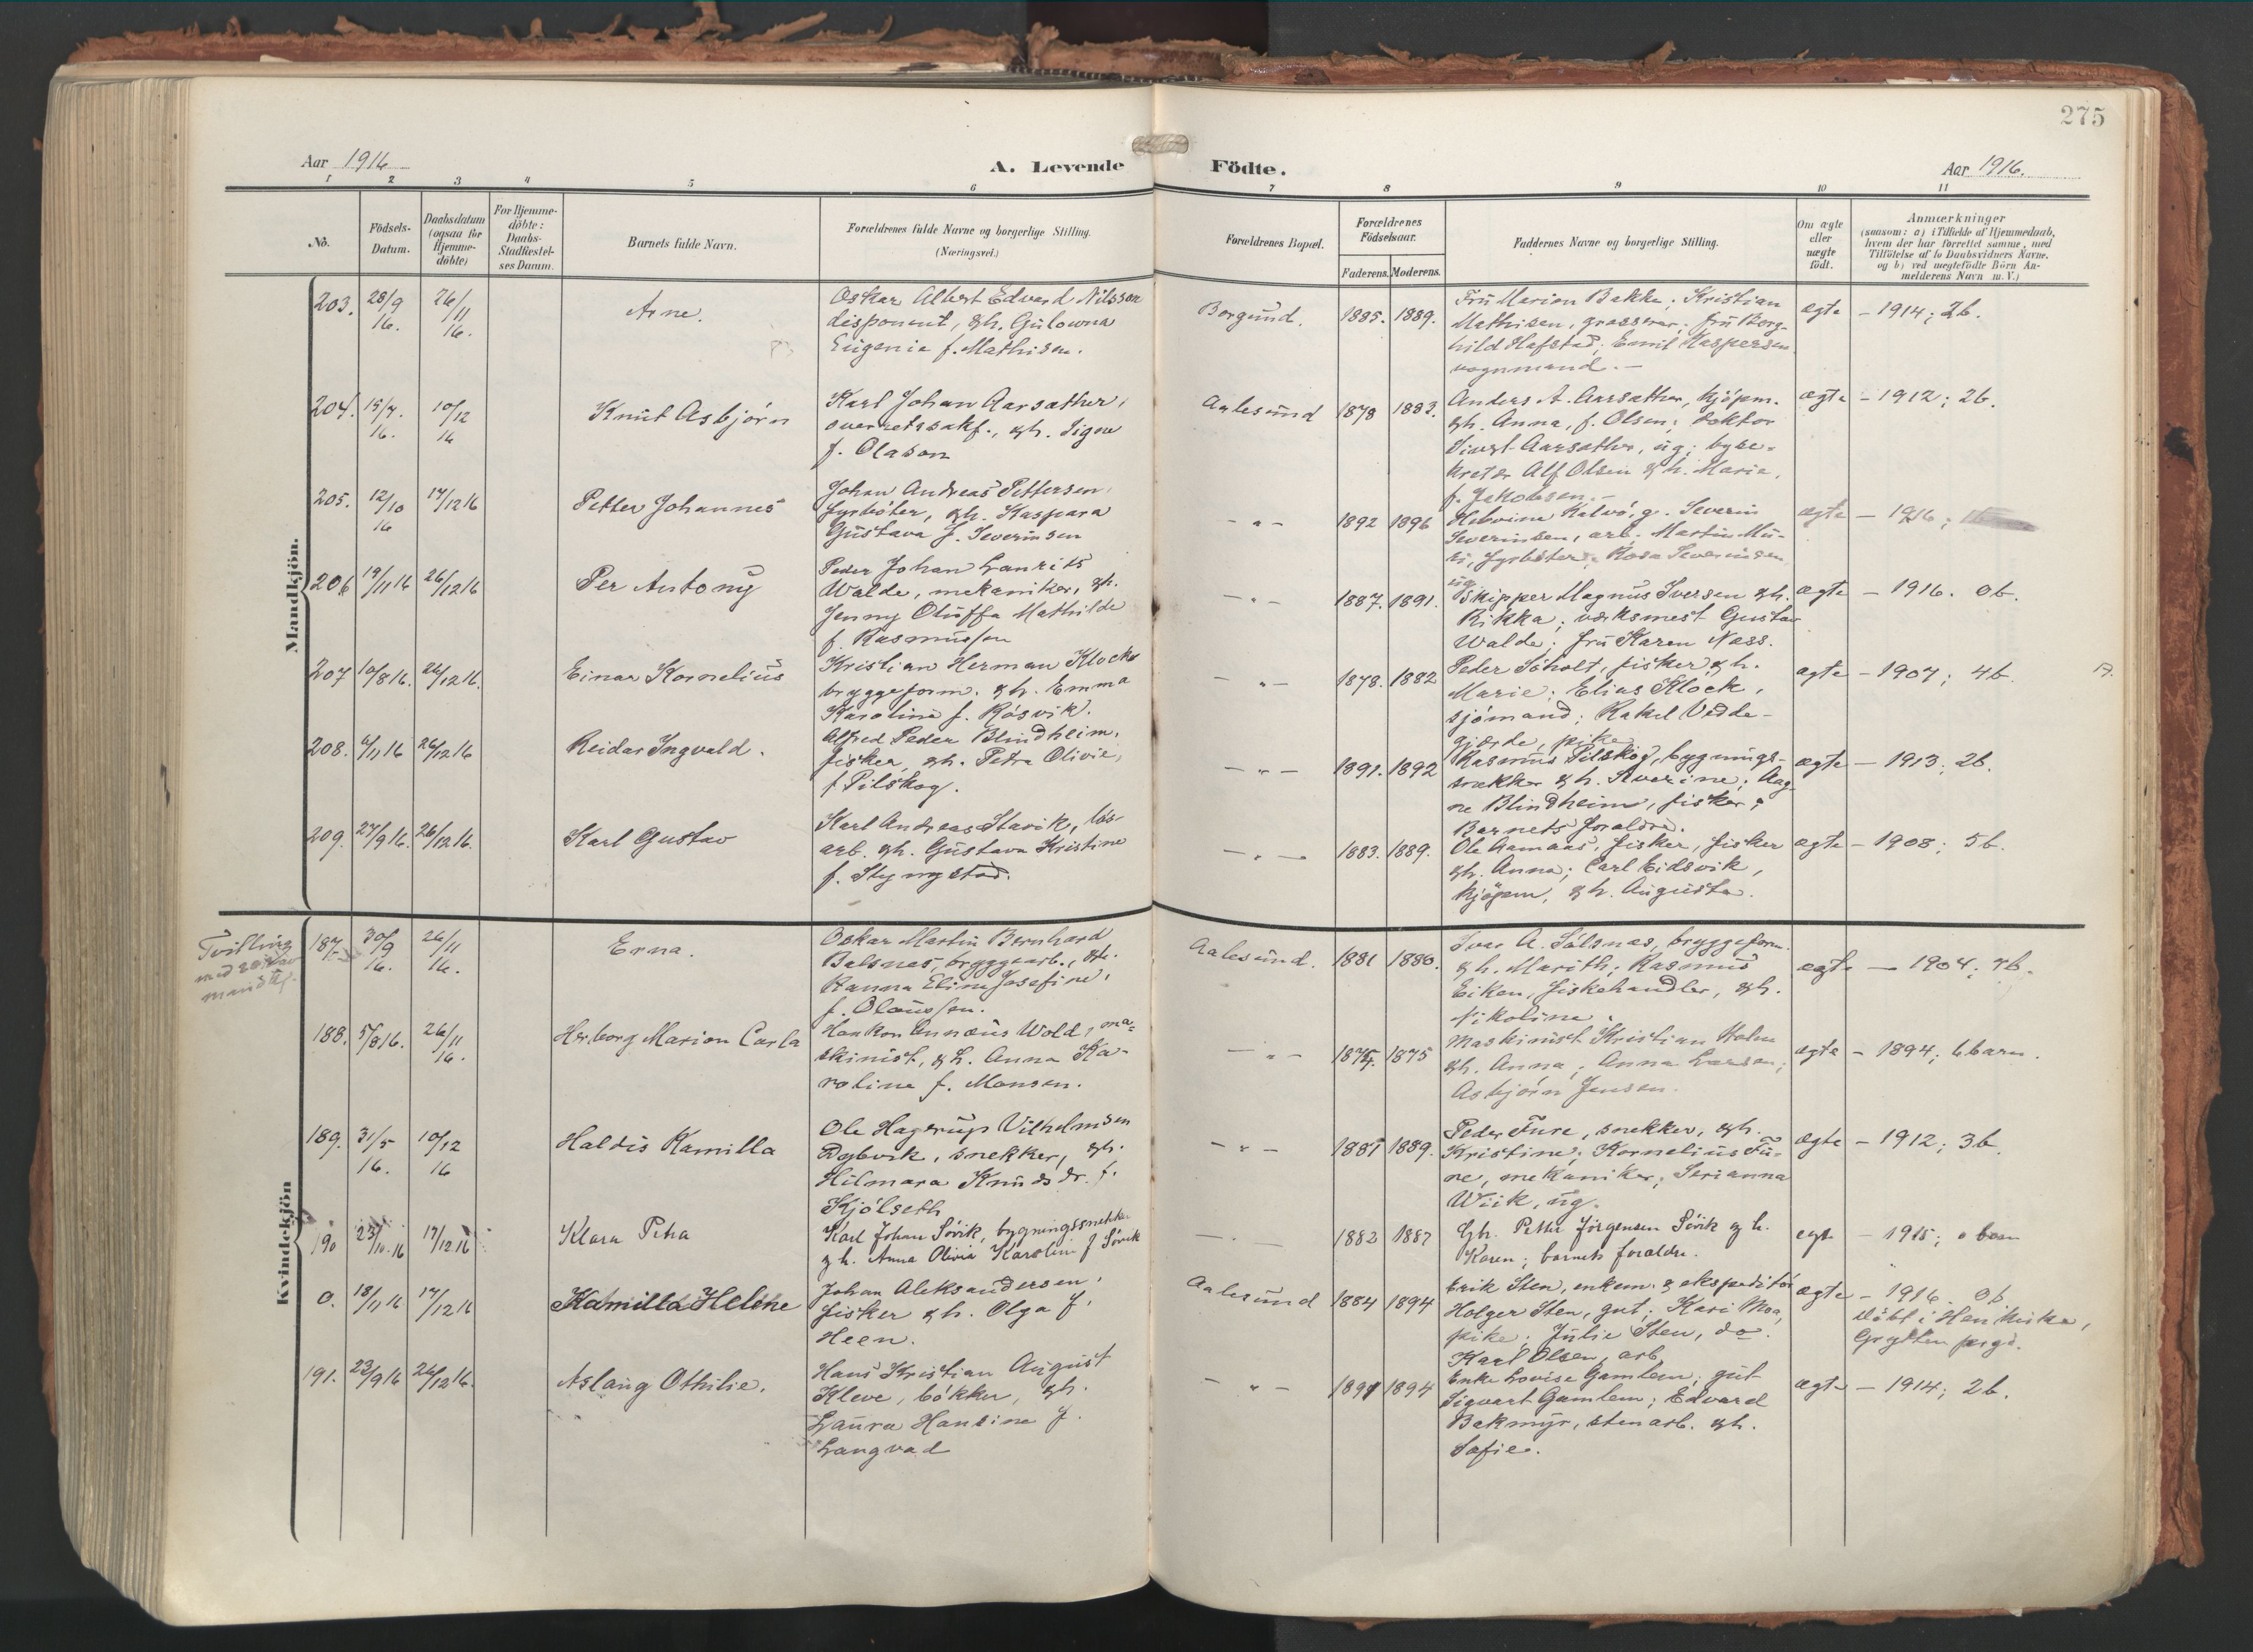 275
Aar 1916
A. Levende
Födte.
Aar 1916.
1 2 3 4 5 6 7 8 9 10 11
No.
Födsels-
Datum.
Daabsdatum
(ogsaa for
Hjemme-
döbte)
For Hjemme-
döbte:
Daabs-
Stadfæstel-
ses Datum.
Barnets fulde Navn.
Forældrenes fulde Navne og borgerlige Stilling.
(Næringsvei.)
Forældrenes Bopæl.
Forældrenes
Födselsaar.
Faderens. Moderens.
Faddernes Navne og borgerlige Stilling.
Om ægte
eller
uægte
födt.
Anmærkninger
(saasom: a) i Tilfælde af Hjemmedaab,
hvem der har forrettet samme, med
Tilföielse af to Daabsvidners Navne.
og b) ved uægtefödte Börn An-
melderens Navn m. V.)
Mandkjön.
203. 28/9 16. 26/11 16. Arne.
Oskar Albert Edvard Nilsson
disponent, & h. Gulowna
Eugenie f. Mathisen.
Borgund. 1885. 1889.
Fru Marion Bakke; Kristian
Mathisen, grosserer; fru Borg-
hild Hafstad; Emil Kaspersen
vognmand. –
ægte – 1914; 2b.
204. 15/7. 16. 10/12 16 Knut Asbjørn
Karl Johan Aarsæther,
overretssakf., & h. Signe
f. Olason
Aalesund 1878 1883.
Anders A. Aarsæther, kjöpm.
& h. Anna, f. Olsen; doktor
Sivert Aarsæther, ug; byse-
kretær Alf Olsen & h. Marie,
f. Jakobsen. –
ægte – 1912; 2b.
205. 12/10 16 17/12 16 Petter Johannes
Johan Andreas Pettersen,
fyrböter, & h. Kaspara
Gustava f. Severinsen
– " – 1892 1896
Kalvö, g. Severin
Severinsen, arb. Martin Mu-
ri, fyrböter; Rosa Severinsen
ug
ægte – 1916;
206 19/11 16 26/12 16 Per Antony
Peder Johan Lauritz
Walde, mekaniker, & h.
Jenny Oluffa Mathilde
f. Rasmussen
– " – 1887. 1891.
Skipper Magnus Iversen & h.
Rikka; verksmest Gustav
Walde; fru Karen Næss.
ægte – 1916. 0b.
207 10/8 16. 26/12 16. Einar Kornelius
Kristian Herman Klock
bryggeform. & h. Emma
Karoline f. Rösvik.
– " – 1878. 1882
Peder Söholt, fisker, & h.
Marie; Elias Klock,
sjömand; Rakel Vedde-
gjerde, pike
ægte – 1907; 4b.
208. 6/11 16 26/12 16 Reidar Ingvald.
Alfred Peder Blindheim,
fisker, & h. Petra Olivie,
f Pilskog.
– " – 1891. 1892
Rasmus Pilskog, bygnings-
snekker & h. Severine; Aag-
ne Blindheim, fisker;
Barnets foraldre.
ægte – 1913; 2b.
209. 27/9 16. 26/12 16. Karl Gustav
Karl Andreas Stavik, lös-
arb. & h. Gustava Kristine
f. Slyngstad.
– " – 1883. 1889.
Ole Aamaas, fisker, fisker
& h. Anna; Carl Eidsvik,
kjöpm, & h. Augusta.
ægte – 1908; 5b.
Kvindekjön
Tvilling
187. 30/9 16. 26/11 16. Erna.
Oskar Martin Bernhard
Balsnes, bryggearb., & h.
Hanna Eline Josefine,
f. Olaussen.
Aalesund. 1881 1880.
Ivar A. Sölsnæs, bryggeform.
& h. Marith; Rasmus
Eiken, fiskehandler, & h.
Nikoline.
ægte – 1904;
188. 5/8 16. 26/11 16. Herborg Marion Carla
Haakon Annæus Wold, ma-
skinist, & h. Anna Ka-
roline f. Monsen.
– " – 1874. 1875
Maskinist Kristian Holm
& h. Anna; Anna Larsen;
Asbjørn Jensen.
ægte – 1894; 6 barn.
189. 31/5 16. 10/12 16 Haldis Kamilla
Ole Hagerup Vilhelmsen
Dybvik, snekker, & h.
Hilmara Knudsdr. f.
Kjölseth
– " – 1887 1889.
Peder Fure, snekker, & h.
Kristine; Kornelius Fu-
re, mekaniker; Serianna
Wiik, ug.
ægte – 1912; 3b.
190 23/10. 16 17/12 16 Klara Petra
Karl Johan Sövik, bygningssnekker
& h. Anna Olivia Karoline f Sövik
– " – 1882 1887
Gbr. Petter Jörgensen Sövik & h.
Karen; barnets foraldre.
egte – 1915; 0 barn
0. 18/11 16 17/12 16 Kamilla Helene
Johan Aleksandersen,
fisker & h. Olga f.
Heen.
Aalesund 1884 1894
Erik Sten, enkem. & ekspeditör
Holger Sten, gut; Kari Moa,
pike; Julie Sten, do.
Karl Olsen, arb.
ægte – 1916. 0b
Döbt i Hen kirke,
Grytten prgd.
191. 23/9 16 26/12 16. Aslaug Othilie.
Hans Kristian August
Kleve, bökker, & h.
Laura Hansine f.
Langvad
– " – 1891 1894
Enke Lovise Gamlem; gut
Sigvart Gamlem; Edvard
Bakmyr, stenarb. & h.
Sofie.
ægte – 1914; 2b.